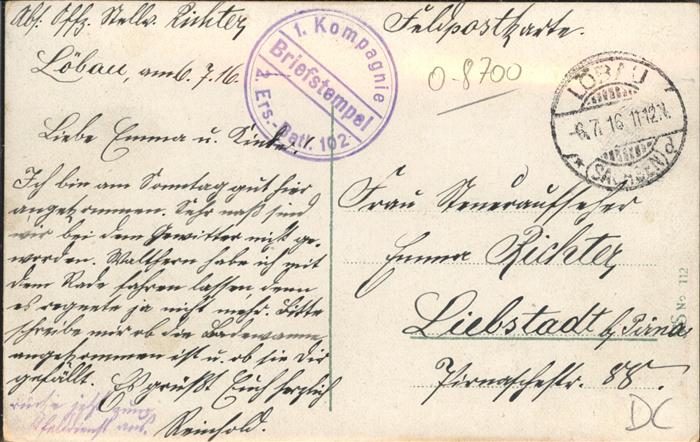 Abs. Offz. Stellv. Richter,
Feldpostkarte.
Löbau, am 6.7.16.
1. Kompagnie
Briefstempel
2. Ers.-Batl. 102
0-8700
LÖBAU
-6.7.16. 11-12N.
*(SACHSEN)
Liebe Emma u. Kinder!
Ich bin am Sonntag gut hier
angekommen. Sehr naß sind
wir bei dem Gewitter nicht ge-
worden. Walthern habe ich mit
dem Rade fahren lassen, denn
es regnete ja nicht mehr. Bitte
schreibe mir ob die Badewanne
angekommen ist u. ob sie Dir
gefällt. Es grüßt Euch herzlich
Reinhold.
rücke jetzt zum
Felddienst aus.
Frau Steueraufseher
Emma Richter,
Liebstadt b. Pirna,
Pirnaschestr. 88.
No 112
DC